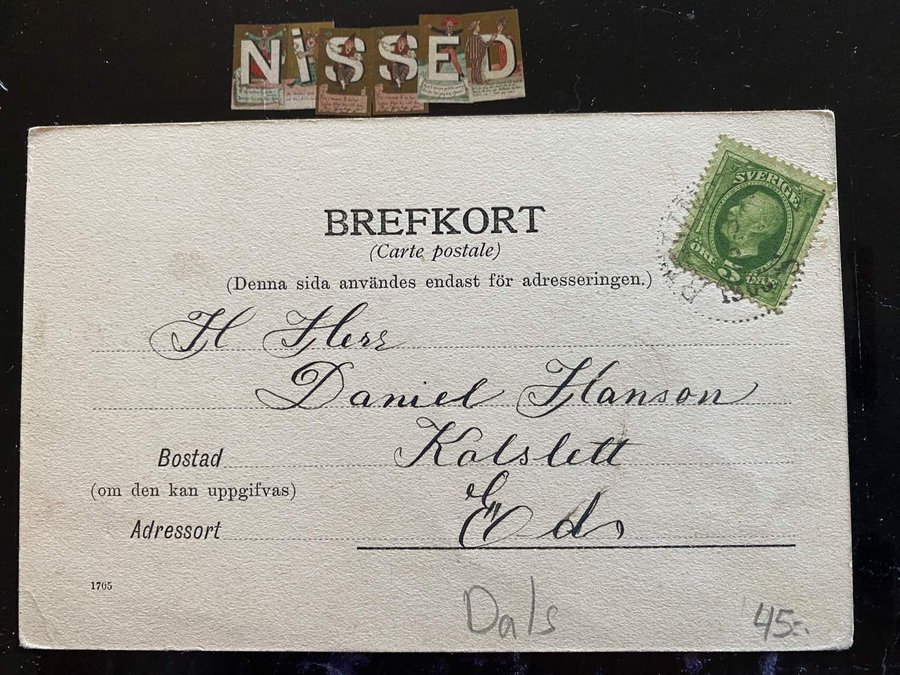 NiSSED
BREFKORT
(Carte postale)
(Denna sida användes endast för adresseringen.)
SVERIGE
5
H Herr
Daniel Hanson
Kolslett
Bostad
(om den kan uppgifvas)
Eds
Adressort
1705
Dals
45:-